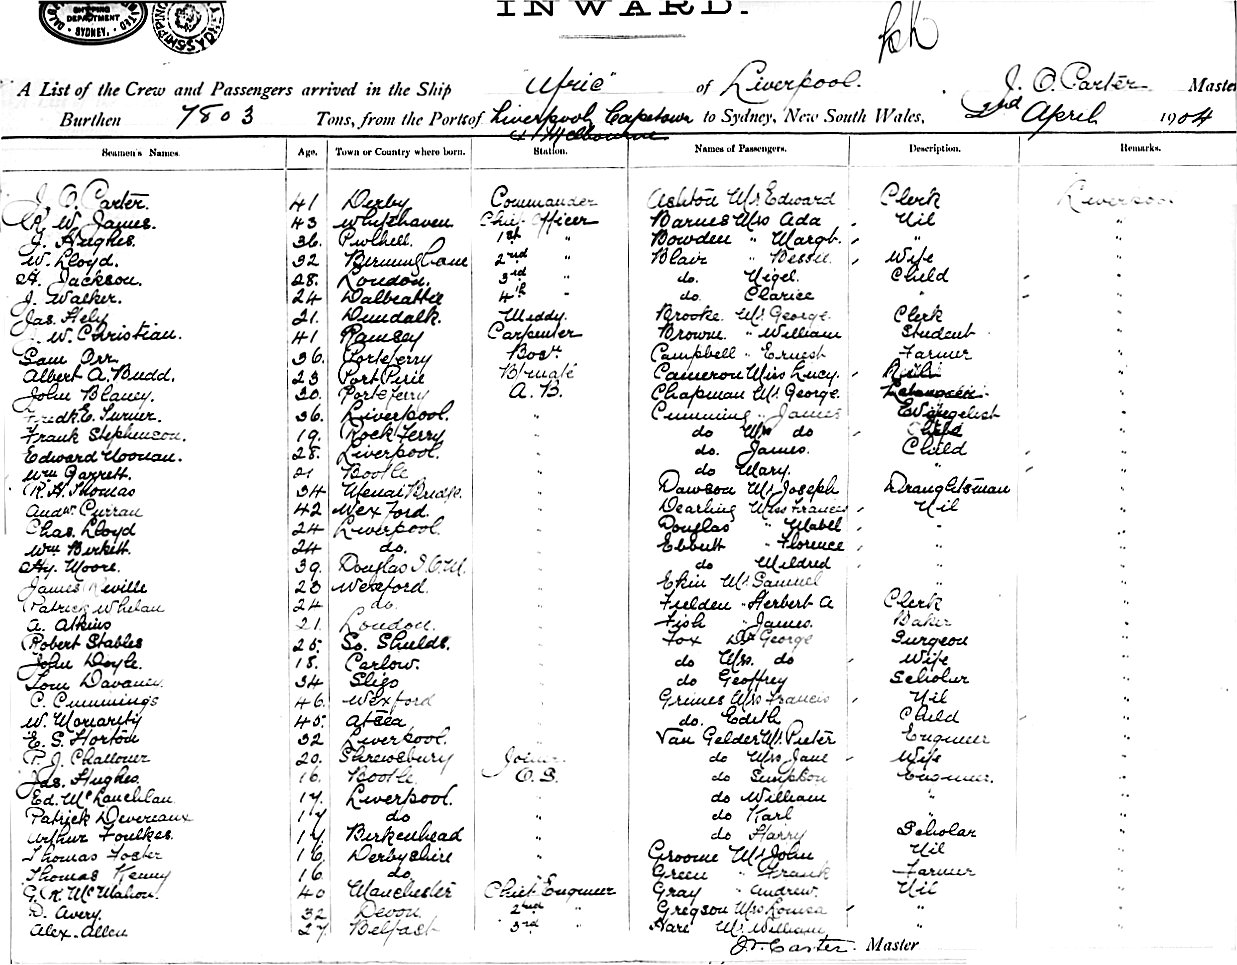 SHIPPING
DEPARTMENT
SYDNEY.
INWARD.
A List of the Crew and Passengers arrived in the Ship "Afric" of Liverpool. J. O. Carter Master
Burthen 7803 Tons, from the Ports of Liverpool, Capetown to Sydney, New South Wales, 2nd April 1904
& Melbourne
Seamen's Names. Age. Town or Country where born. Station. Names of Passengers. Description. Remarks.
J. O. Carter. 41 Derby Commander Ashton Mr Edward Clerk Liverpool
R. W. James. 43 Whitehaven Chief Officer Barnes Miss Ada Nil "
J. Hughes. 36 Pwllheli. 1st " Bowden " Margt. " "
W. Lloyd. 32 Birmingham 2nd " Blair " Bessie Wife "
A. Jackson. 28. London. 3rd " do. Nigel. Child "
J. Walker. 24 Dalbeattie 4th " do. Clarice " "
Jas. Hely 21. Dundalk. Middy. Brooke Mr George. Clerk "
W. Christian. 41 Ramsey Carpenter Browne " William Student "
Sam Orr 36. Portaferry Bosn. Campbell " Ernest Farmer "
Albert A. Budd. 23 Port Pirie B'mate Cameron Miss Lucy. "
John Blaney. 30. Portaferry A. B. Chapman Mr George. "
Fredk E. Turner. 36. Liverpool. " Cumming " James Evangelist "
Frank Stephenson. 19. Rock Ferry " do Mrs do "
Edward Noonan. 28. Liverpool. " do. James. Child "
Wm Garrett. 21 Bootle " do Mary. " "
R. H. Thomas 34 Menai Bridge. " Dawson Mr Joseph Draughtsman "
Andw. Curran 42 Wexford. " Dearling Miss Francis Nil "
Chas. Lloyd 24 Liverpool. " Douglas " Mabel " "
Wm Birkett. 24 do. " Ebbutt " Florence " "
Hy. Moore. 39. Douglas I.O.M. " do Mildred " "
James Neville 23 Wexford. " Ekin Mr Samuel "
Patrick Whelan 24 do. " Fielden " Herbert A Clerk "
A. Atkins 21. London. " Fish " James. Baker "
Robert Stables 25. So. Shields. " Fox Dr George Surgeon "
John Doyle. 18. Carlow. " do Mrs. do Wife "
Tom Davaney. 34 Sligo " do Geoffrey Scholar "
C. Cummings 46. Wexford " Grimes Mrs Francis Nil "
W. Moriarity 45. At sea " do. Edith Child "
E. S. Horton 32 Liverpool. " Van Gelder Mr. Pieter Engineer "
P. J. Challoner 20. Shrewsbury Joiner. do Mrs Jane Wife "
Jas. Hughes. 16. Bootle. O. S. do Simpson Engineer. "
Ed. McLauchlan 17. Liverpool. " do William " "
Patrick Devereaux 17 do " do Karl " "
Arthur Foulkes. 17. Birkenhead " do Harry Scholar "
Thomas Foster 16. Derbyshire " Groome Mr John Nil "
Thomas Kenny 16 do. " Green " Frank Farmer "
G. K. McMahon. 40 Manchester Chief Engineer Gray " Andrew. Nil "
D. Avery. 32 Devon. 2nd " Gregson Mrs Louisa " "
Alex. Allen 27 Belfast 3rd " Hare Mr William "
J. O. Carter. Master